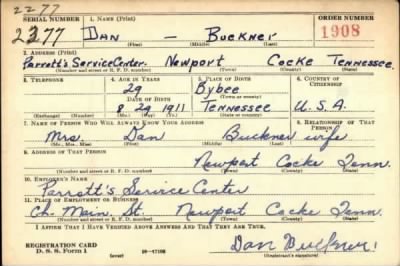 2277
SERIAL NUMBER 1. NAME (Print) ORDER NUMBER
2377 DAN — BUCKNER 1908
(First) (Middle) (Last)
2. ADDRESS (Print)
Parrott's Service Center. Newport Cocke Tennessee.
(Number and street or R. F. D. number) (Town) (County) (State)
3. TELEPHONE 4. AGE IN YEARS 5. PLACE OF BIRTH 6. COUNTRY OF CITIZENSHIP
29 Bybee
DATE OF BIRTH (Town or county)
8 29 1911 Tennessee U.S.A.
(Exchange) (Number) (Mo.) (Day) (Yr.) (State or country)
7. NAME OF PERSON WHO WILL ALWAYS KNOW YOUR ADDRESS 8. RELATIONSHIP OF THAT PERSON
Mrs. Dan Buckner wife
(Mr., Mrs., Miss) (First) (Middle) (Last)
9. ADDRESS OF THAT PERSON
Newport Cocke Tenn.
(Number and street or R. F. D. number) (Town) (County) (State)
10. EMPLOYER'S NAME
Parrott's Service Center
11. PLACE OF EMPLOYMENT OR BUSINESS
Main St. Newport Cocke Tenn.
(Number and street or R. F. D. number) (Town) (County) (State)
I AFFIRM THAT I HAVE VERIFIED ABOVE ANSWERS AND THAT THEY ARE TRUE.
REGISTRATION CARD
D. S. S. Form 1 (over) Dan Buckner
(Registrant's signature)